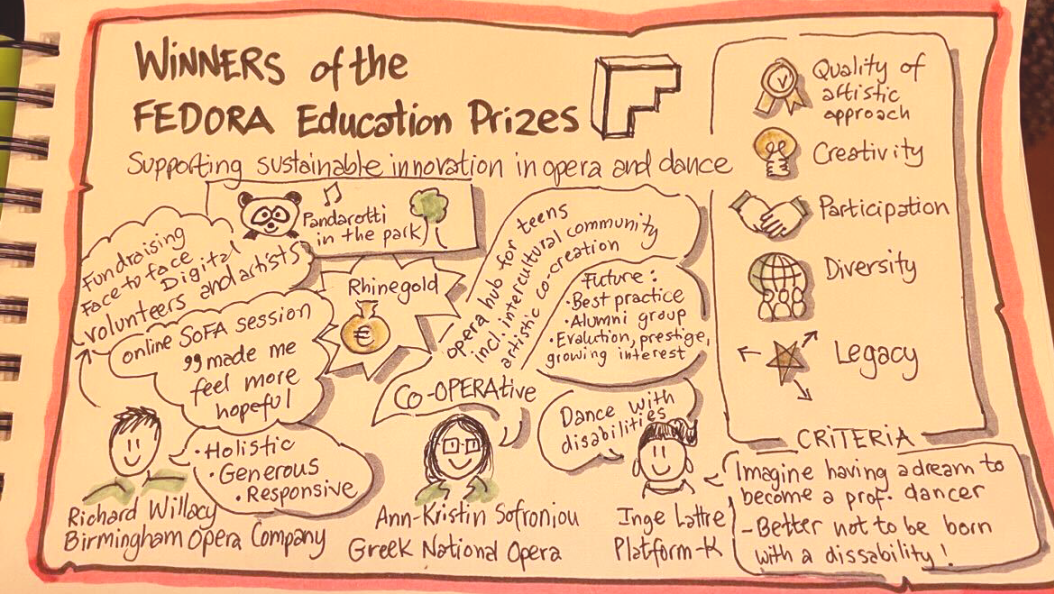 WINNERS of the
FEDORA Education Prizes
Supporting sustainable innovation in opera and dance
Pandarotti
in the park
Fundraising
Face to face
Digital
volunteers and artists
Rhinegold
€
online SoFA session
"made me
feel more
hopeful
• Holistic
• Generous
• Responsive
Richard Willacy
Birmingham Opera Company
opera hub for teens
incl. intercultural community
artistic co-creation
Co-OPERAtive
Future:
• Best practice
• Alumni group
• Evalution, prestige,
growing interest
Ann-Kristin Sofroniou
Greek National Opera
Dance with
disabilities
Inge Lattre
Platform-K
Imagine having a dream to
become a prof. dancer
- Better not to be born
with a dissability!
Quality of
artistic
approach
Creativity
Participation
Diversity
Legacy
CRITERIA